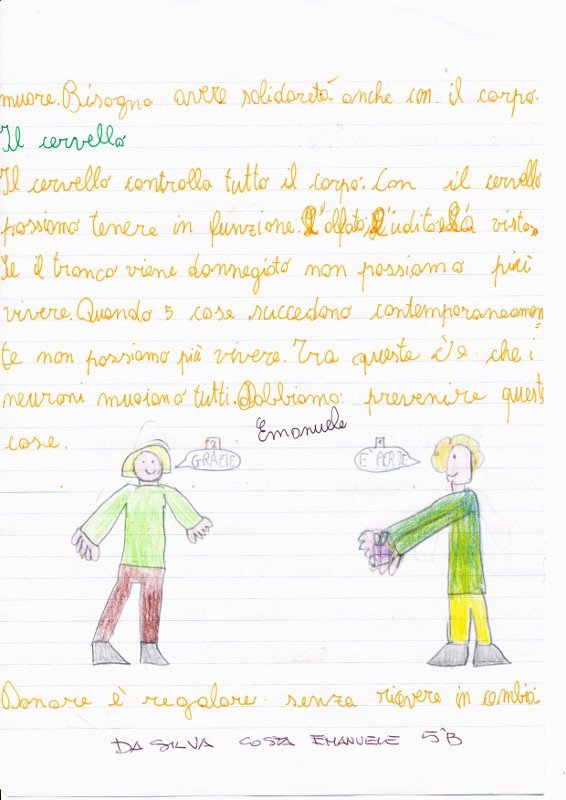 muore. Bisogna avere solidaretà anche con il corpo.
Il cervello
Il cervello controlla tutto il corpo. Con il cervello
possiamo tenere in funzione. L'olfato, L'udito e La vista.
Se il tronco viene dannegiato non possiamo più
vivere. Quando 5 cose succedono contemporaneamen=
te non possiamo più vivere. Tra queste c'è che i
neuroni muoiano tutti. Dobbiamo prevenire queste
cose.
Emanuele
2
GRAZIE
1
E' PER TE
Donare è regalare senza ricevere in cambio.
DA SILVA COSTA EMANUELE 5^B